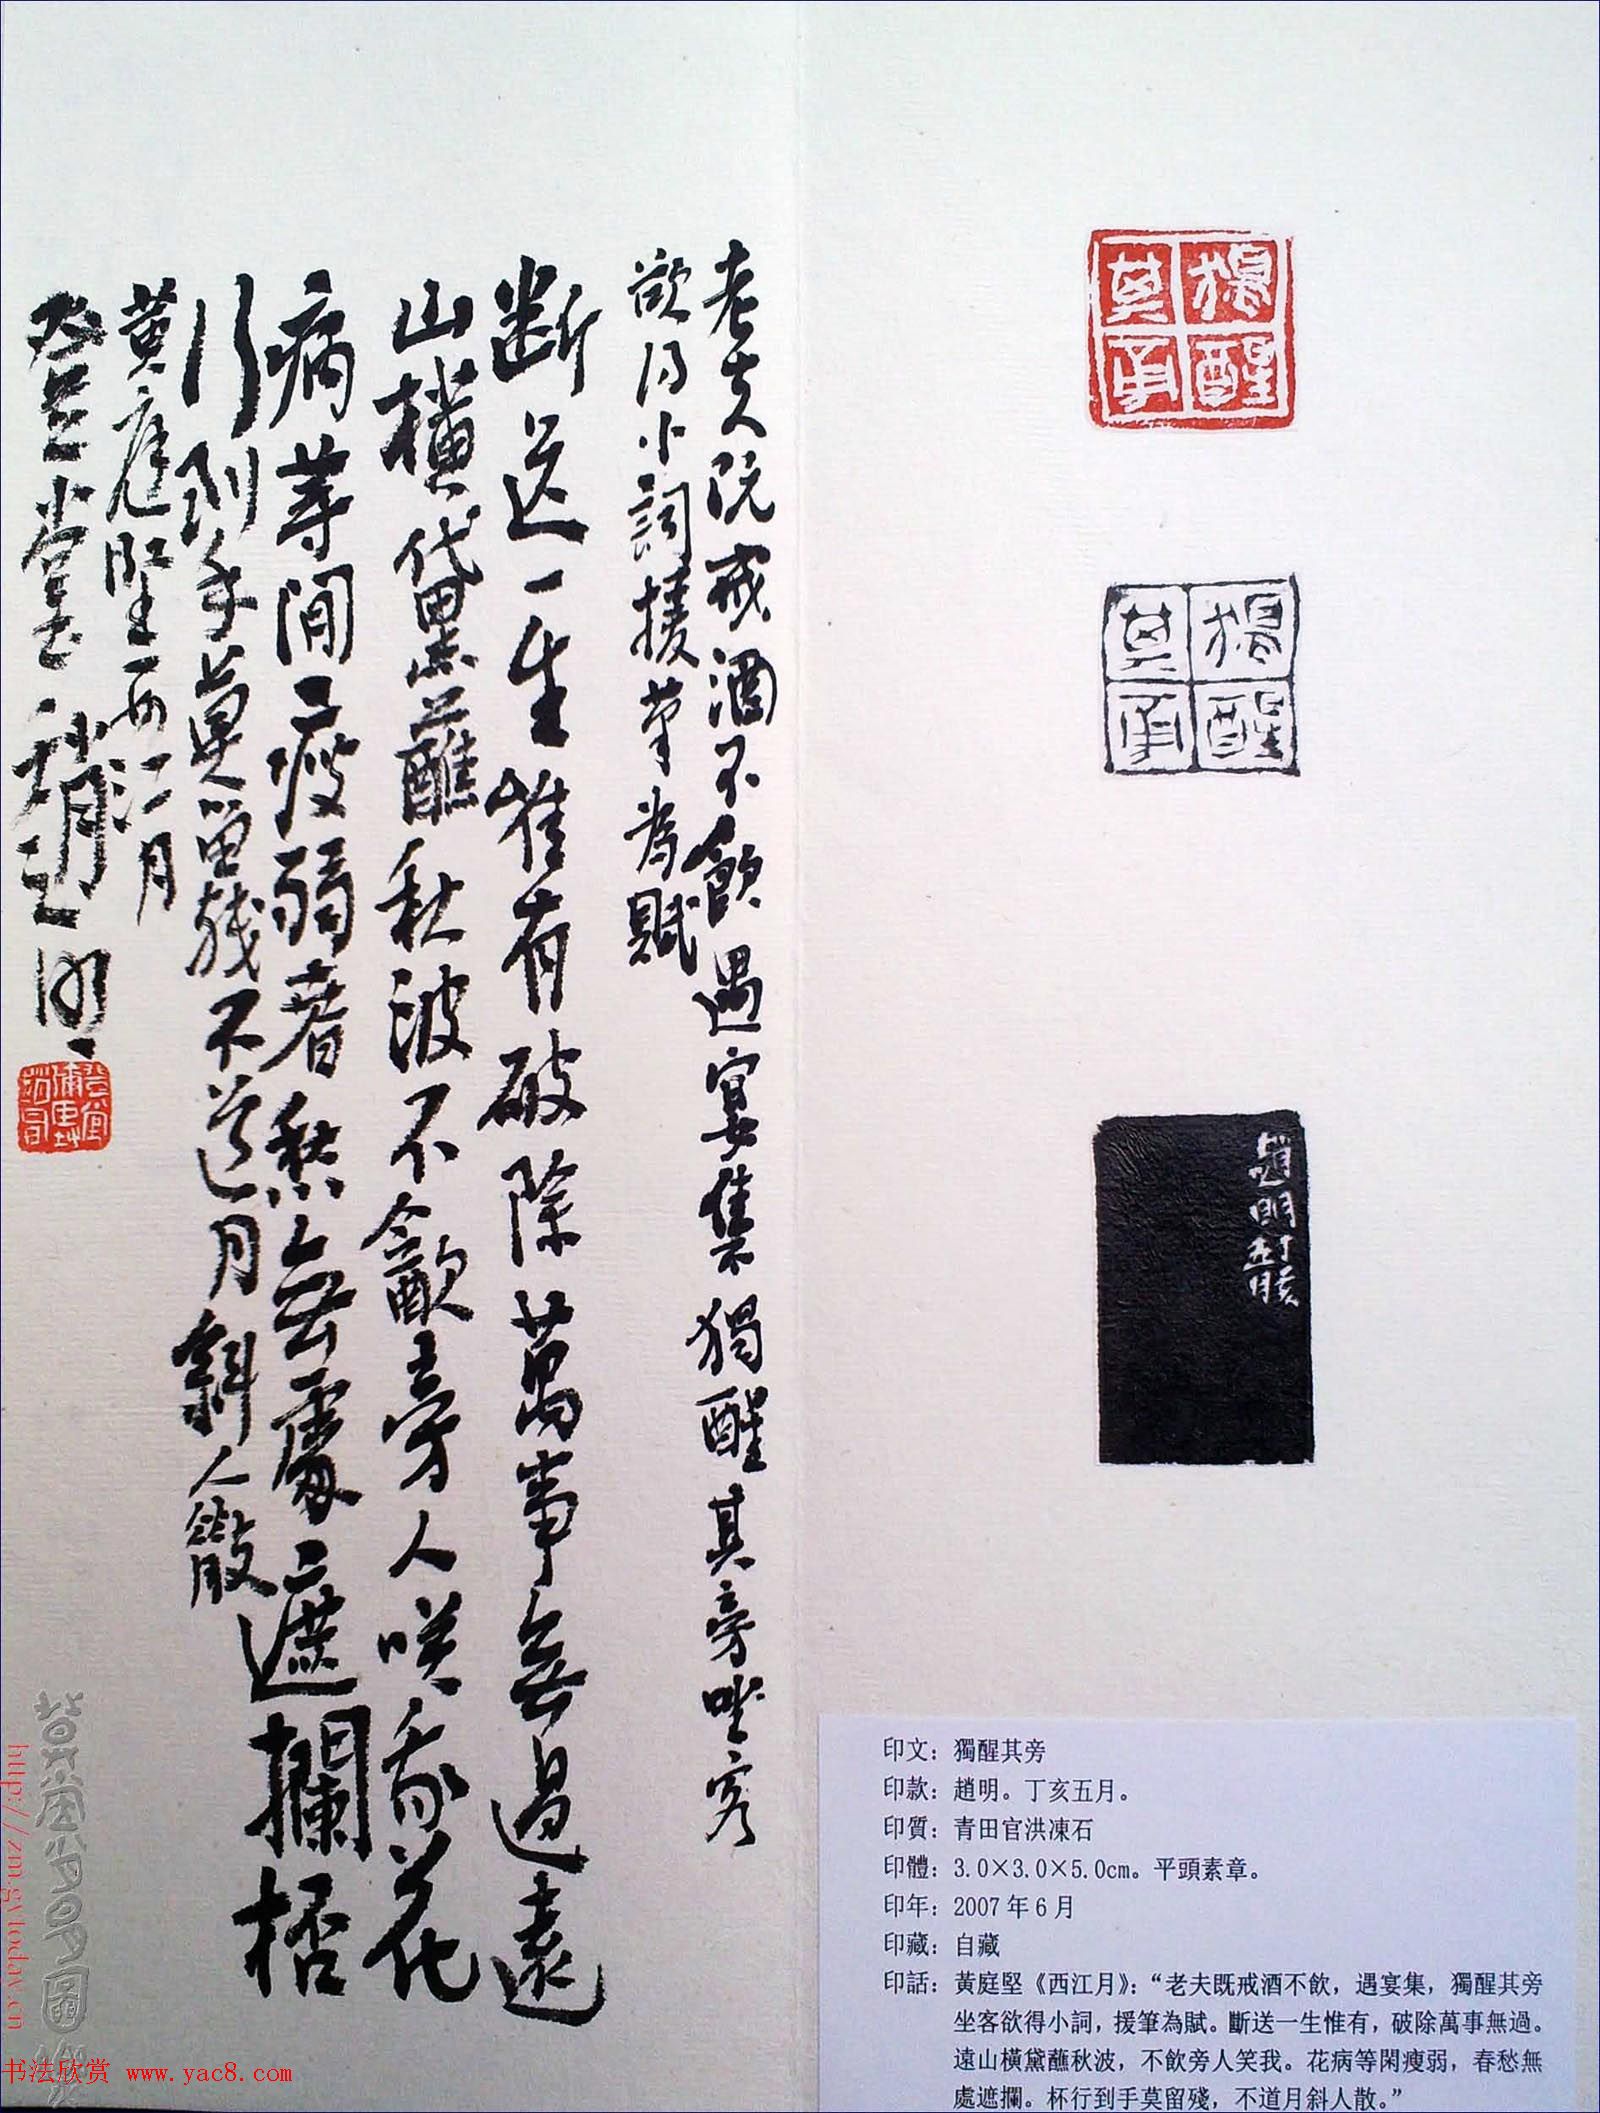 獨醒其旁
獨醒其旁
趙明丁亥
五月
印文：獨醒其旁
印款：趙明。丁亥五月。
印質：青田官洪凍石
印體：3.0×3.0×5.0cm。平頭素章。
印年：2007年6月
印藏：自藏
印話：黃庭堅《西江月》：“老夫既戒酒不飲，遇宴集，獨醒其旁
坐客欲得小詞，援筆為賦。斷送一生惟有，破除萬事無過。
遠山橫黛蘸秋波，不飲旁人笑我。花病等閑瘦弱，春愁無
處遮攔。杯行到手莫留殘，不道月斜人散。”
老夫既戒酒不飲遇宴集獨醒其旁坐客
欲得小詞援筆為賦
斷送一生惟有破除萬事無過遠
山橫黛蘸秋波不飲旁人咲我花
病等閒瘦弱春愁無處遮攔杯
行到手莫留殘不道月斜人散
黃庭堅西江月
登堂趙明
书法欣赏 www.yac8.com
http://zm.gytoday.cn